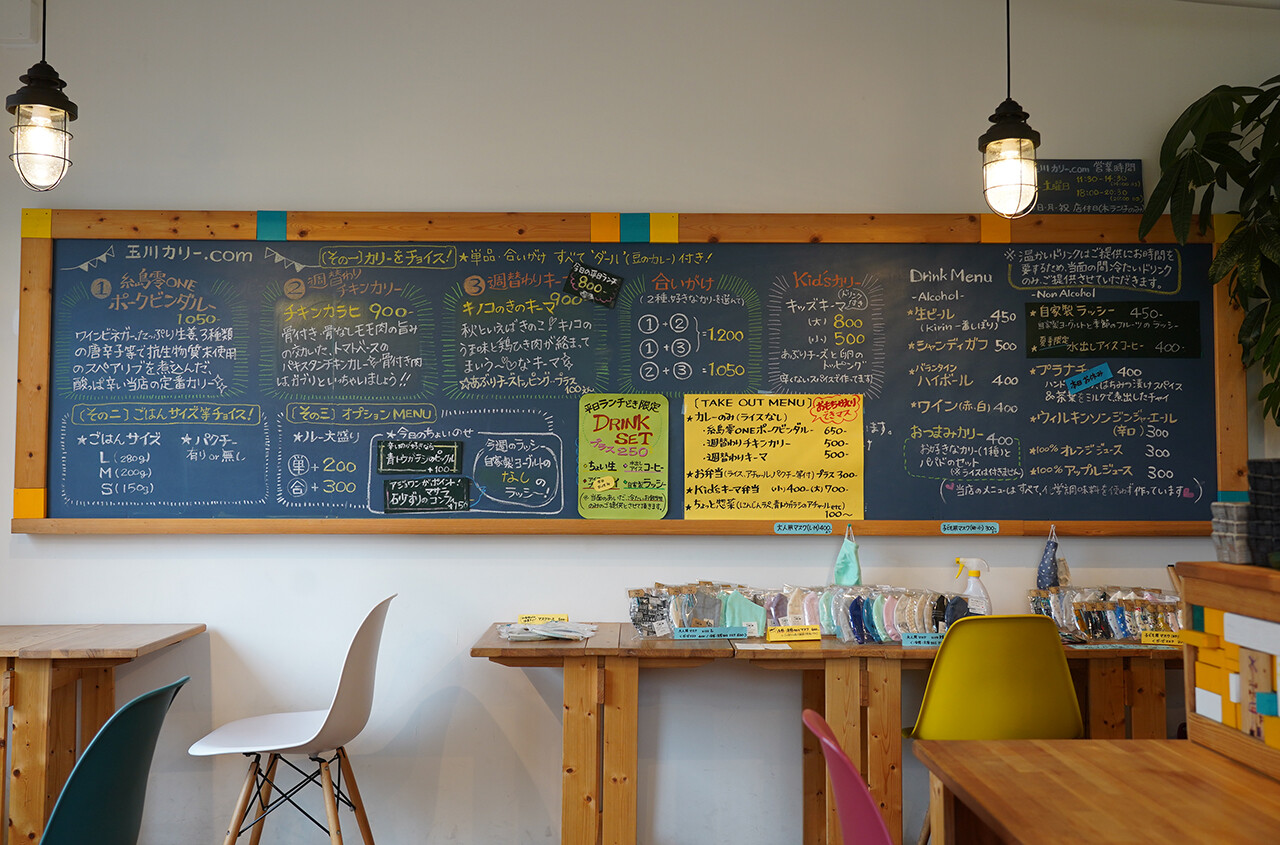 玉川カリー.com
(その一)カリーをチョイス!
★単品・合いがけ すべて"ダール"(豆のカレー)付き!
① 糸島雫ONE
ポークビンダルー
1050-
ワインビネガー、たっぷり生姜、3種類
の唐辛子等で抗生物質未使用
のスペアリブを煮込んだ、
酸っぱ辛い当店の定番カリー
② 週替わり
チキンカリー
チキンカラヒ 900-
骨付き、骨なしモモ肉の旨み
の溶けた、トマトベースの
パキスタンチキンカレーを骨付き肉
は、ガブリといっちゃいましょう!!
③ 週替わりキーマ
キノコのきのキーマ
900-
秋といえばきのこ キノコの
うま味と鶏ひき肉が絡まって
まいう〜なキーマ
☆炙りチーズトッピング プラス
100-
今日の平日ランチ
800-
合いがけ
(2種、好きなカリーを選んで)
①+②
①+③
=1.200
②+③ =1.050
Kid'sカリー
キッズキーマ
ドリンク付き
(大) 800
(小) 500
あぶりチーズと卵の
トッピング
辛くないスパイスで作ってます
(その二)ごはんサイズ等チョイス!
★ごはんサイズ
L (280g)
M (200g)
S (150g)
★パクチー
有り or 無し
(その三)オプションMENU
★ルー大盛り
単+200
合+300
★今日のちょいのせ
辛いの好きなら
青トウガラシのピックル
+100-
アジワンがポイント!
マサラ
砂ずりのコンフィ
+150-
今週のラッシー
自家製ヨーグルトの
なしの
ラッシー!
平日ランチどき限定
DRINK
SET
プラス250
・ちょい生
・水出しアイスコーヒー
・自家製ラッシー
[TAKE OUT MENU]
★カレーのみ(ライスなし)
・糸島雫ONEポークビンダルー 650-
・週替わりチキンカリー 500-
・週替わりキーマ 500-
★お弁当(ライス、アチャール、パクチー等付) プラス300-
★Kid'sキーマ弁当 (小)400-(大)700-
★ちょっと惣菜(にんじんラペ、青トウガラシのアチャールetc)
100〜
ます。
Drink Menu
-Alcohol-
★生ビール 450
(kirin一番しぼり)
★シャンディガフ 500
★バランタイン
ハイボール 400
★ワイン(赤・白) 400
おつまみカリー 400
・お好きなカリー(1種)と
パパドのセット
(※ライスは付きません)
※温かいドリンクはご提供にお時間を
要するため、当面の間、冷たいドリンク
のみご提供させていただきます。
-Non Alcohol-
★自家製ラッシー 450-
自家製ヨーグルトと季節のフルーツのラッシー
★夏季限定 水出しアイスコーヒー 400-
★プラナチャイ 400
本日お休み
&茶葉をミルクで煮出したチャイ
★ウィルキンソンジンジャーエール
(辛口) 300
★100%オレンジジュース 300
★100%アップルジュース 300
(当店のメニューはすべて、化学調味料を使わず作っています)
玉川カリー.com 営業時間
11:30-14:30
土曜日
18:00-20:30
大人用マスク(L・M)400-